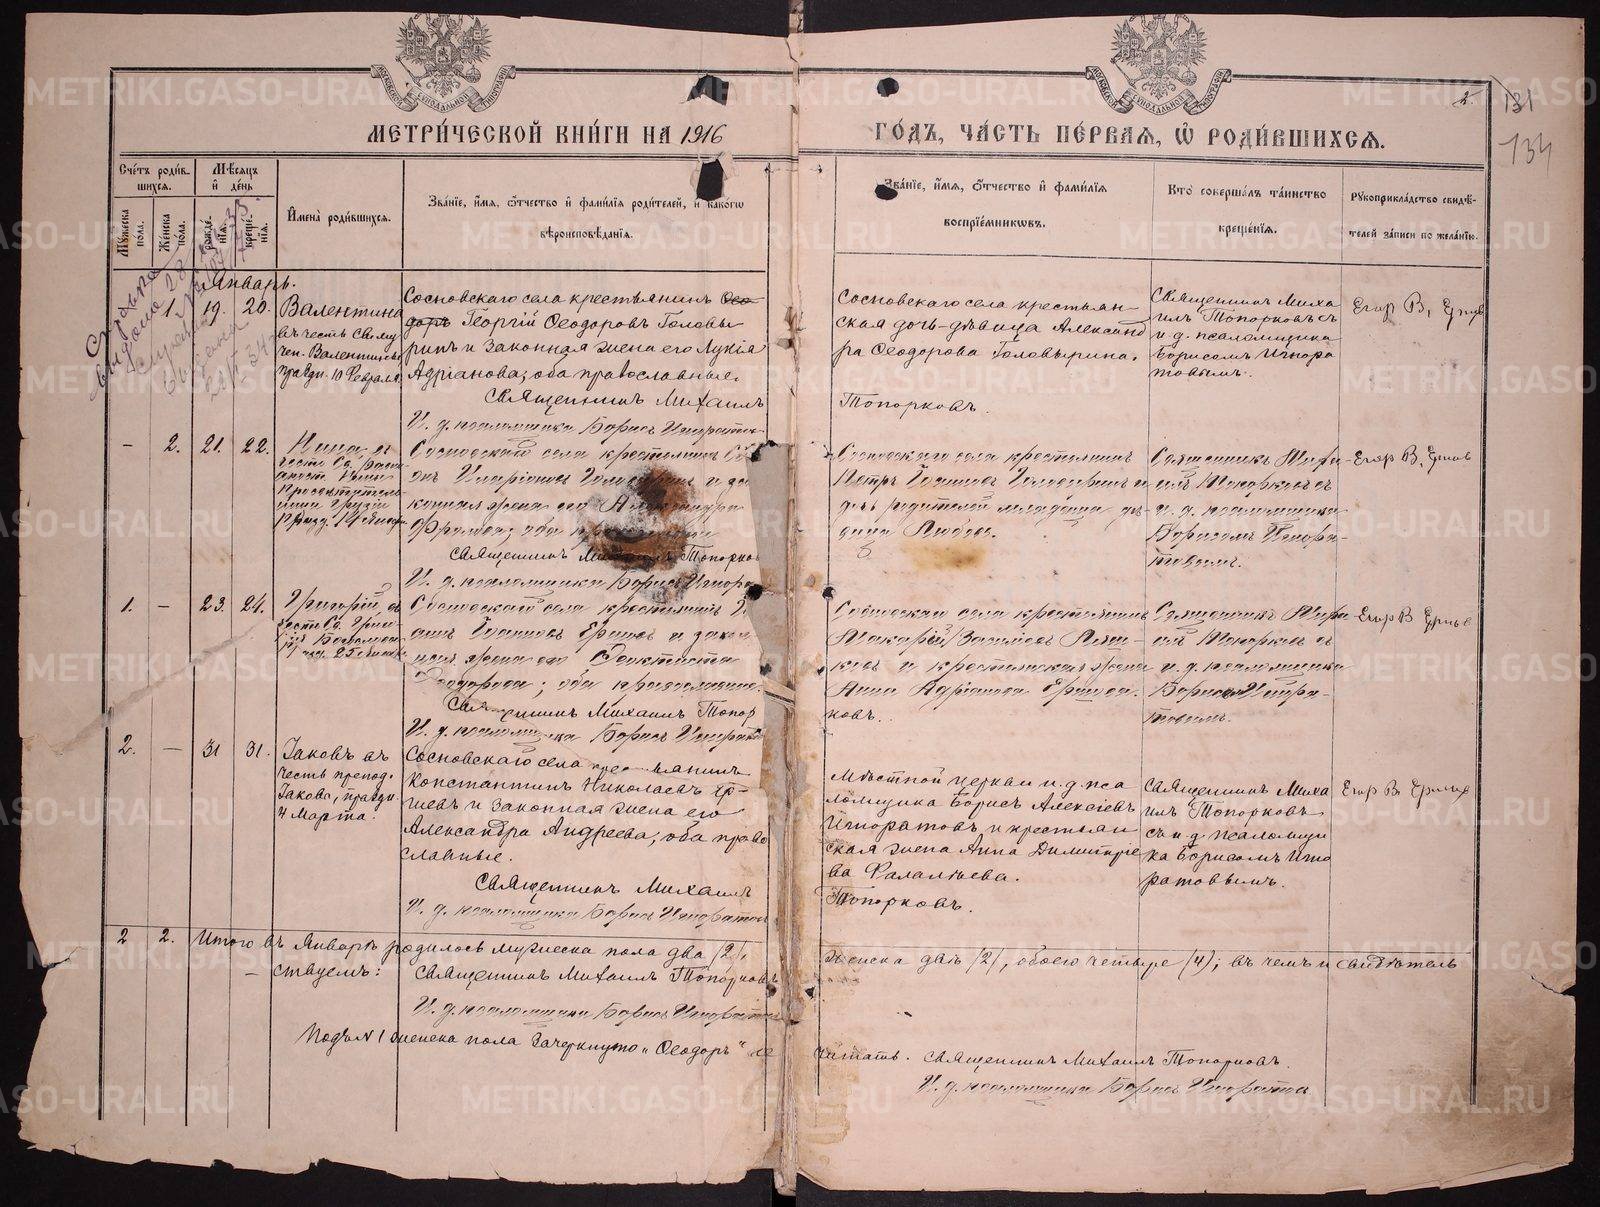 МЕТРИ́ЧЕСКОЙ КНИ́ГИ НА 1916
ГО́ДЪ, ЧА́СТЬ ПЕ́РВАЯ, Ѡ РОДИ́ВШИХСЯ.
2.
131
134
Сче́тъ роди́вшихся.
Мѣ́сяцъ и де́нь
Му́жеска по́ла.
Же́нска по́ла.
рожде́нїя.
креще́нїя.
И҆мена̀ роди́вшихся.
Зва́нїе, и҆́мя, ѻ҆́тчество и҆ фами́лїя роди́телей, и҆ како́гѡ
вѣроисповѣ́данїя.
Зва́нїе, и҆́мя, ѻ҆́тчество и҆ фами́лїя
воспрїе́мникѡвъ.
Кто̀ соверша́лъ та́инство
креще́нїя.
Рꙋкоприкла́дство свидѣ́-
телей за́писи по жела́нїю.
Январь.
1. 19. 20.
Валентина
въ честь св. му
чен. Валентины
праздн. 10 Февраля.
Сосновскаго села крестьянинъ Ѳео-
доръ Георгій Ѳеодоровъ Головы-
ринъ и законная жена его Лукія
Адріанова; оба православные.
Священникъ Михаилъ
И. д. псаломщика Борисъ Игнорато
Сосновскаго села крестьян-
ская дочь-дѣвица Александ
ра Ѳеодорова Головырина.
Топорковъ.
Священникъ Миха
илъ Топорковъ съ
и. д. псаломщика
Борисомъ Игнора
товымъ.
Егор В.
– 2. 21. 22.
Нина, въ
честь Св. равн
ап. Нины
Просвѣтитель
ницы Грузіи
празд. 14 Января
Сосновскаго села крестьянинъ
Иларіоновъ Головыринъ и за
конная жена его Александра
Фролова; оба православные
Священникъ Михаилъ Топорков
И. д. псаломщика Борисъ Игнора
Сосновскаго села крестьянинъ
Петръ Іоанновъ Головыринъ и
дочь родителей младенца дѣ
вица Любовь.
Священникъ Миха
илъ Топорковъ съ
и. д. псаломщика
Борисомъ Игнора-
товымъ.
Егор В.
1. – 23. 24.
Григорій, въ
честь Св. Григо
рія Богослова
празд. 25 Января
Сосновскаго села крестьянинъ
Іоанновъ Ершовъ и закон
ная жена его Ѳеоктиста
Ѳеодорова; оба православные.
Священникъ Михаилъ Топор
И. д. псаломщика Борисъ Игнорато
Сосновскаго села крестьянинъ
Макарій
и крестьянская жена
Анна Адріанова Ершова.
ковъ.
Священникъ Миха
илъ Топорковъ съ
и. д. псаломщика
Борисомъ Игнора-
товымъ.
Егор В
2. – 31 31.
Іаковъ въ
честь препод.
Іакова, праздн.
4 Марта.
Сосновскаго села крестьянинъ
Константинъ Николаевъ
и законная жена его
Александра Андреева, оба право
славные.
Священникъ Михаилъ
И. д. псаломщика Борисъ Игноратов
Мѣстной церкви и. д. пса
ломщика Борисъ Алексѣевъ
Игноратовъ и крестьян
ская жена Анна Димитріе
ва Фалалѣева.
Топорковъ.
Священникъ Миха
илъ Топорковъ
съ и. д. псаломщи
ка Борисомъ Игно
ратовымъ.
Егор В
2 2. Итого въ Январѣ родилось мужеска пола два /2/,
женска двѣ /2/, обоего четыре /4/; въ чемъ и свидѣтель
– ствуемъ: Священникъ Михаилъ Топорковъ
И. д. псаломщика Борисъ Игноратов
Подъ № 1 женска пола зачеркнуто „Ѳеодоръ" не
читать. Священникъ Михаилъ Топорковъ.
И. д. псаломщика Борисъ Игноратов
METRIKI.GASO-URAL.RU